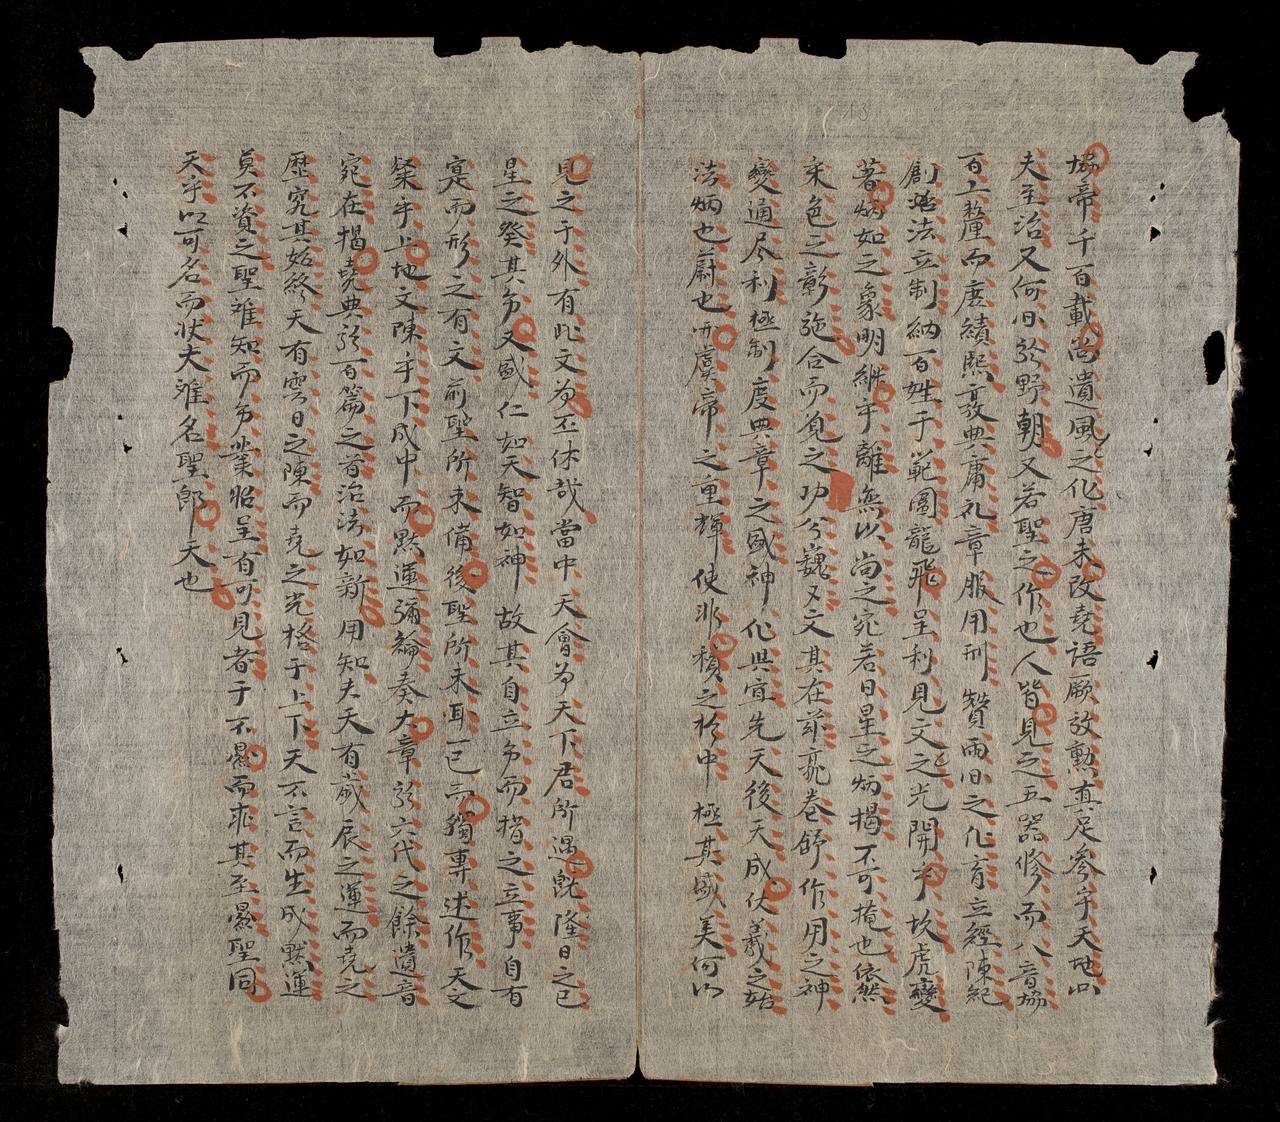 協帝千百載尚遺風之化唐未改堯語厥放勲真足參乎天地以
夫至治又何旧於野朝又若聖之作也人皆見之五器修而八音協
百工釐而庶績熙敦典庸礼章服用刑贊雨旧之化育立經陳紀
創法立制納百姓于範圍龍飛呈利見文之光開乎坎虎變
著炳如之象明継乎離無以尚之宛若日星之炳揭不可掩也依然
采色之彰施合而覓之功兮巍又文其在茲亮卷舒作用之神
變通尽利極制度典章之盛神化與宜先天後天成伏羲之始
法炳也蔚也開虞帝之重輝使非積之於中極其盛美何以
見之于外有此文為丕休哉當中天會為天下君所遇旣隆日之已
星之癸其為又盛仁如天智如神故其自立為而揩之立事自有
寔而形之有文前聖所未備後聖所未耳一已而獨專述作天文
粲乎上地文陳乎下成中而黙運彌綸奏大章於六代之餘遺音
宛在揭堯典於百篇之首治法如新用知夫天有歲辰之運而堯之
歷究其始終天有雲日之陳而堯之光格于上下天不言而生成黙運
莫不資之聖難知而為業昭呈有可見者于不器而求其至最聖同
天乎以可名而状夫難名聖郎天也